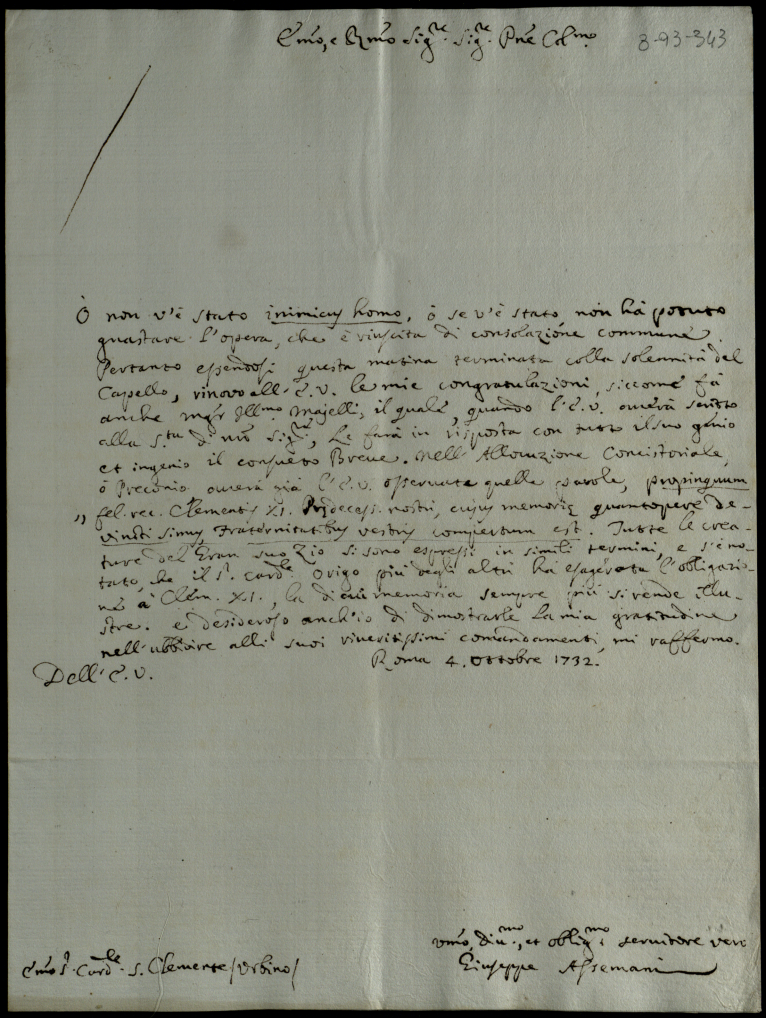 Emo, e Rmo Sigre. Sigre. Pne Colmo.
8-93-343
Ò non v'è stato inimicus homo, ò se v'è stato non hà potuto
guastare l'opera, che è riuscita di consolazione commune.
Pertanto essendosi questa matina terminata colla solennità del
Capello, rinovo all'E.V. le mie congratulazioni, siccome fà
anche mgr Illmo. Majelli, il quale, quando l'E.V. averà scritto
alla Stà di nrō Sigre, Le farà in risposta con tutto il suo genio
et ingenio il consueto Breve. Nell'Allocuzione Concistoriale,
ò Preconio averà già l'E.V. osservate quelle parole, propinquum
„ fel. rec. Clementis XI. Prędecess. nostri, cujus memorię quantopere de-
vincti simus, Fraternitatibus vestris compertum est. Tutte le crea-
ture del Gran suo Zio si sono espressi in simili termini, e s'è no-
tato, che il Sr. Cardle. Origo più degli altri hà esagerata l'obligazio-
ne à Clem. XI., la di cui memoria sempre più si rende illu-
stre. e desideroso anch'io di dimostrarle la mia gratitudine
nell'ubbidire alli suoi riveritissimi comandamenti, mi raffermo.
Roma 4. Ottobre 1732.
Dell'E.V.
Umo, divmo., et obligmo. servitore vero
Giuseppe Assemani
Emo Sr. Cardle. S. Clemente /Urbino/